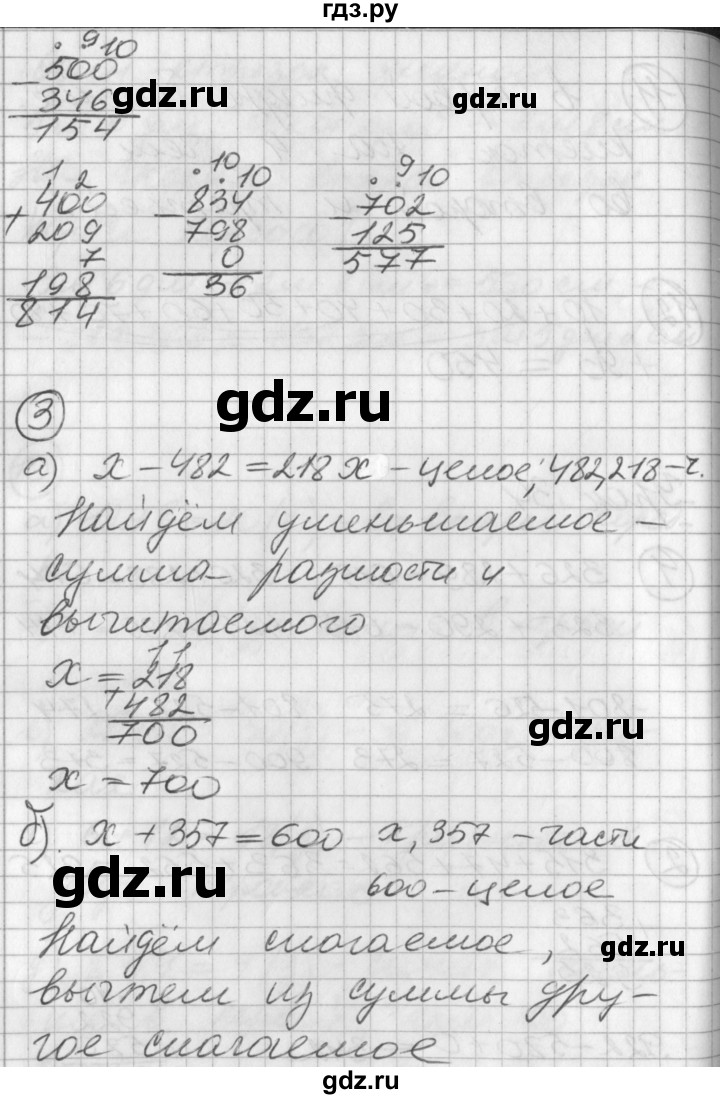 гдз.ру
. 9 10
- 500
346
154
гдз.ru
гдз.ru
1 2
+ 400
209
7
198
814
. 10 . 10
- 834
798
0
36
. 9 . 10
- 702
125
577
③
gdz.ru
а) x − 482 = 218 x − целое; 482,218 − ч.
Найдём уменьшаемое −
сумма разности и
вычитаемого
1 1
x = 218
+ 482
700
gdz.ru
x = 700
б). x + 357 = 600 x, 357 − части
gdz.ru
600 − целое
Найдём слагаемое,
gdz.ru
вычтем из суммы дру-
гое слагаемое
gdz.ru